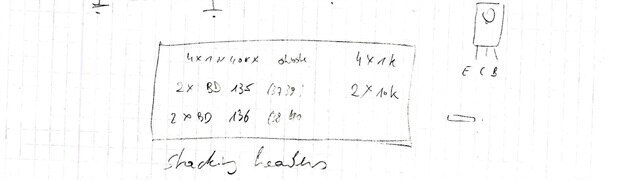 4x1N400x diode 4x1k
2x BD 135 (37 39) 2x10k
2x BD 136
E C B
stacking headers